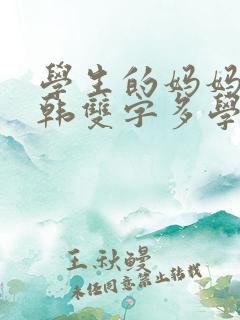 學生的妈妈
韩雙字多學
王秋鳗
未经同意禁止转载